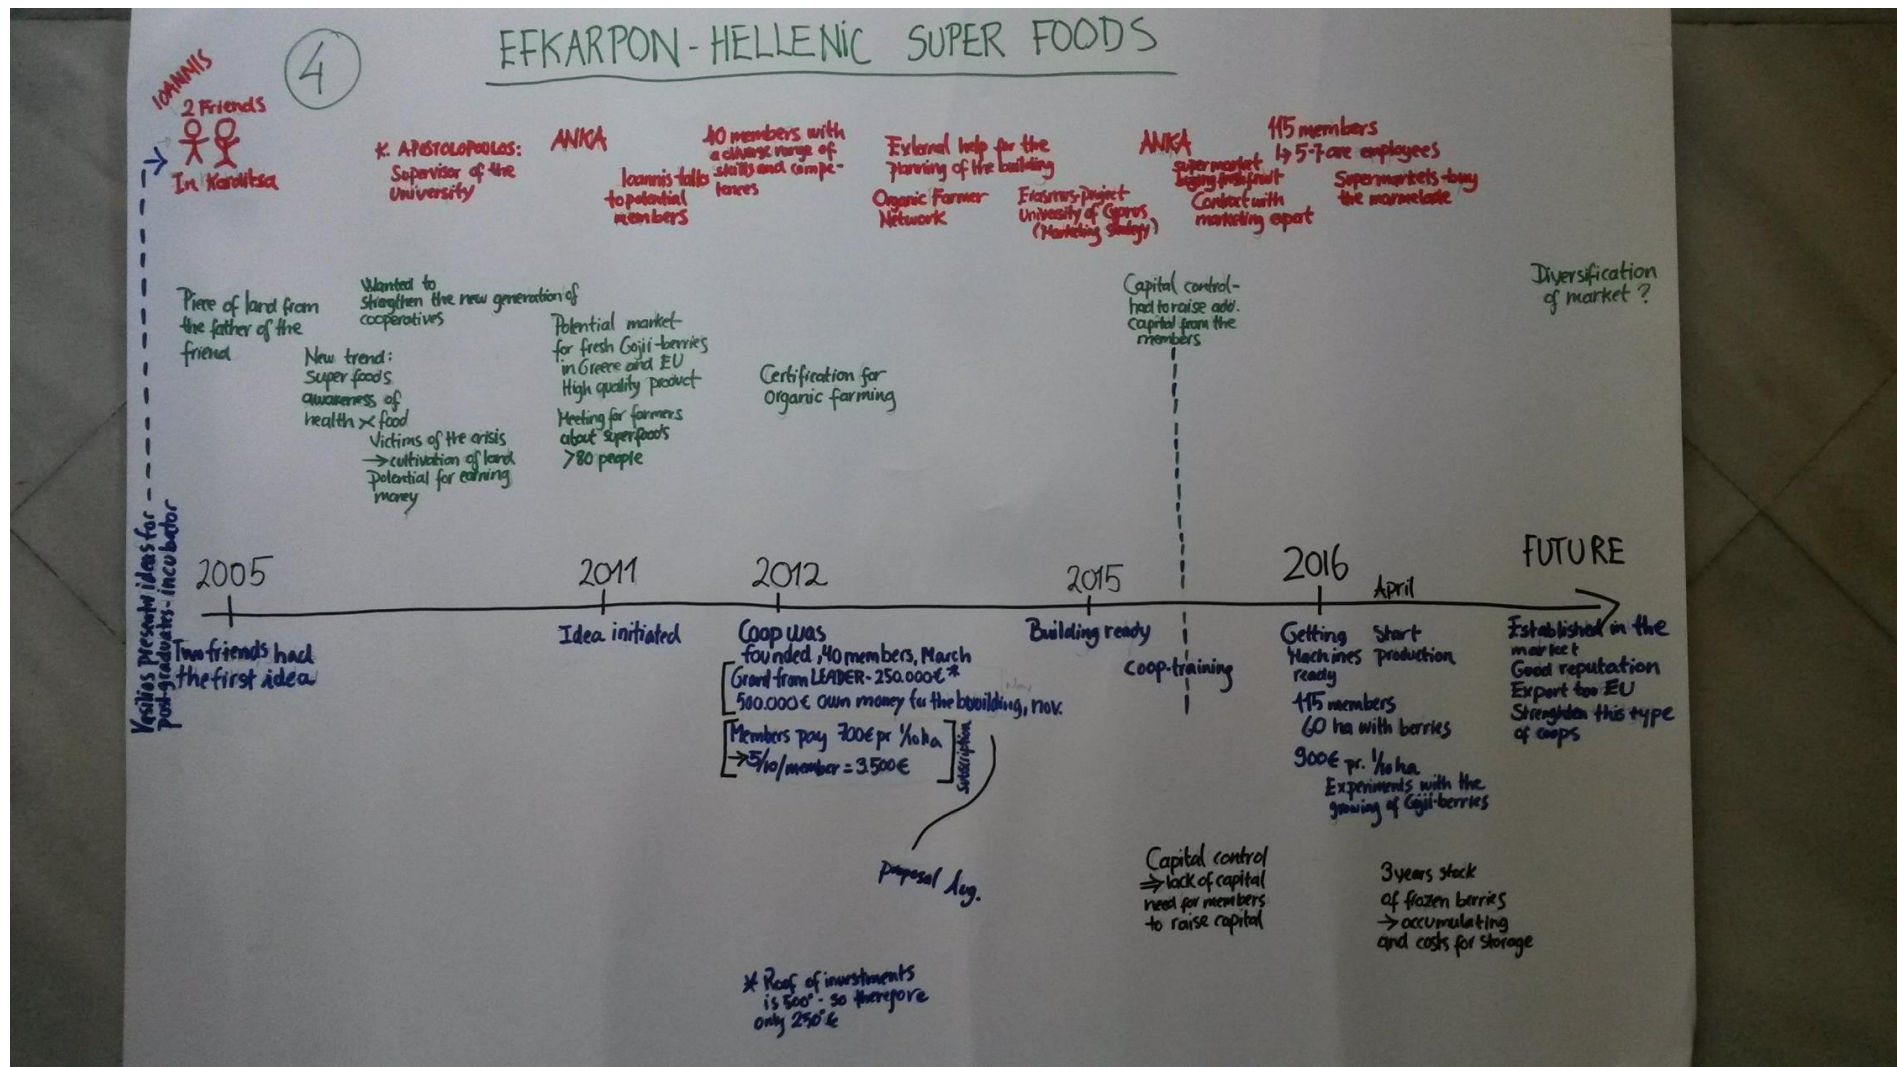 4
EFKARPON - HELLENIC SUPER FOODS
IOANNIS
2 Friends
In Karditsa
K. APOSTOLOPOULOS:
Supervisor of the
University
ANKA
Ioannis talks
to potential
members
40 members with
a diverse range of
skills and compe-
tences
External help for the
planning of the building
Organic Farmer
Network
Erasmus-project
University of Cyprus
(Marketing strategy)
ANKA
supermarket
buying fresh fruit
Contract with
marketing expert
115 members
↳ 5-7 are employees
Supermarkets buy
the marmelade
Piece of land from
the father of the
friend
Wanted to
strengthen the new generation of
cooperatives
New trend:
Super foods
awareness of
health x food
Victims of the crisis
→ cultivation of land
Potential for earning
money
Potential market
for fresh Gojii-berries
in Greece and EU
High quality product
Meeting for farmers
about superfoods
>80 people
Certification for
Organic farming
Capital control-
had to raise add.
capital from the
members
Diversification
of market?
Vasilios presents ideas for
post-graduates - incubator
2005
2011
2012
2015
2016
April
FUTURE
Two friends had
the first idea
Idea initiated
Coop was
founded, 40 members, March
Grant from LEADER - 250.000€*
500.000€ own money for the buuilding, nov.
Members pay 700€ pr 1/10 ha
→ 5/10/member = 3.500€
Subscription
Proposal Aug.
* Roof of investments
is 500° - so therefore
only 250°€
Building ready
coop-training
Getting
Machines
ready
Start
production
115 members
60 ha with berries
900€ pr. 1/10 ha
Experiments with the
growing of Gojii-berries
Established in the
market
Good reputation
Export too EU
Strenghten this type
of coops
Capital control
⇒ lack of capital
need for members
to raise capital
3 years stock
of frozen berries
→ accumulating
and costs for storage